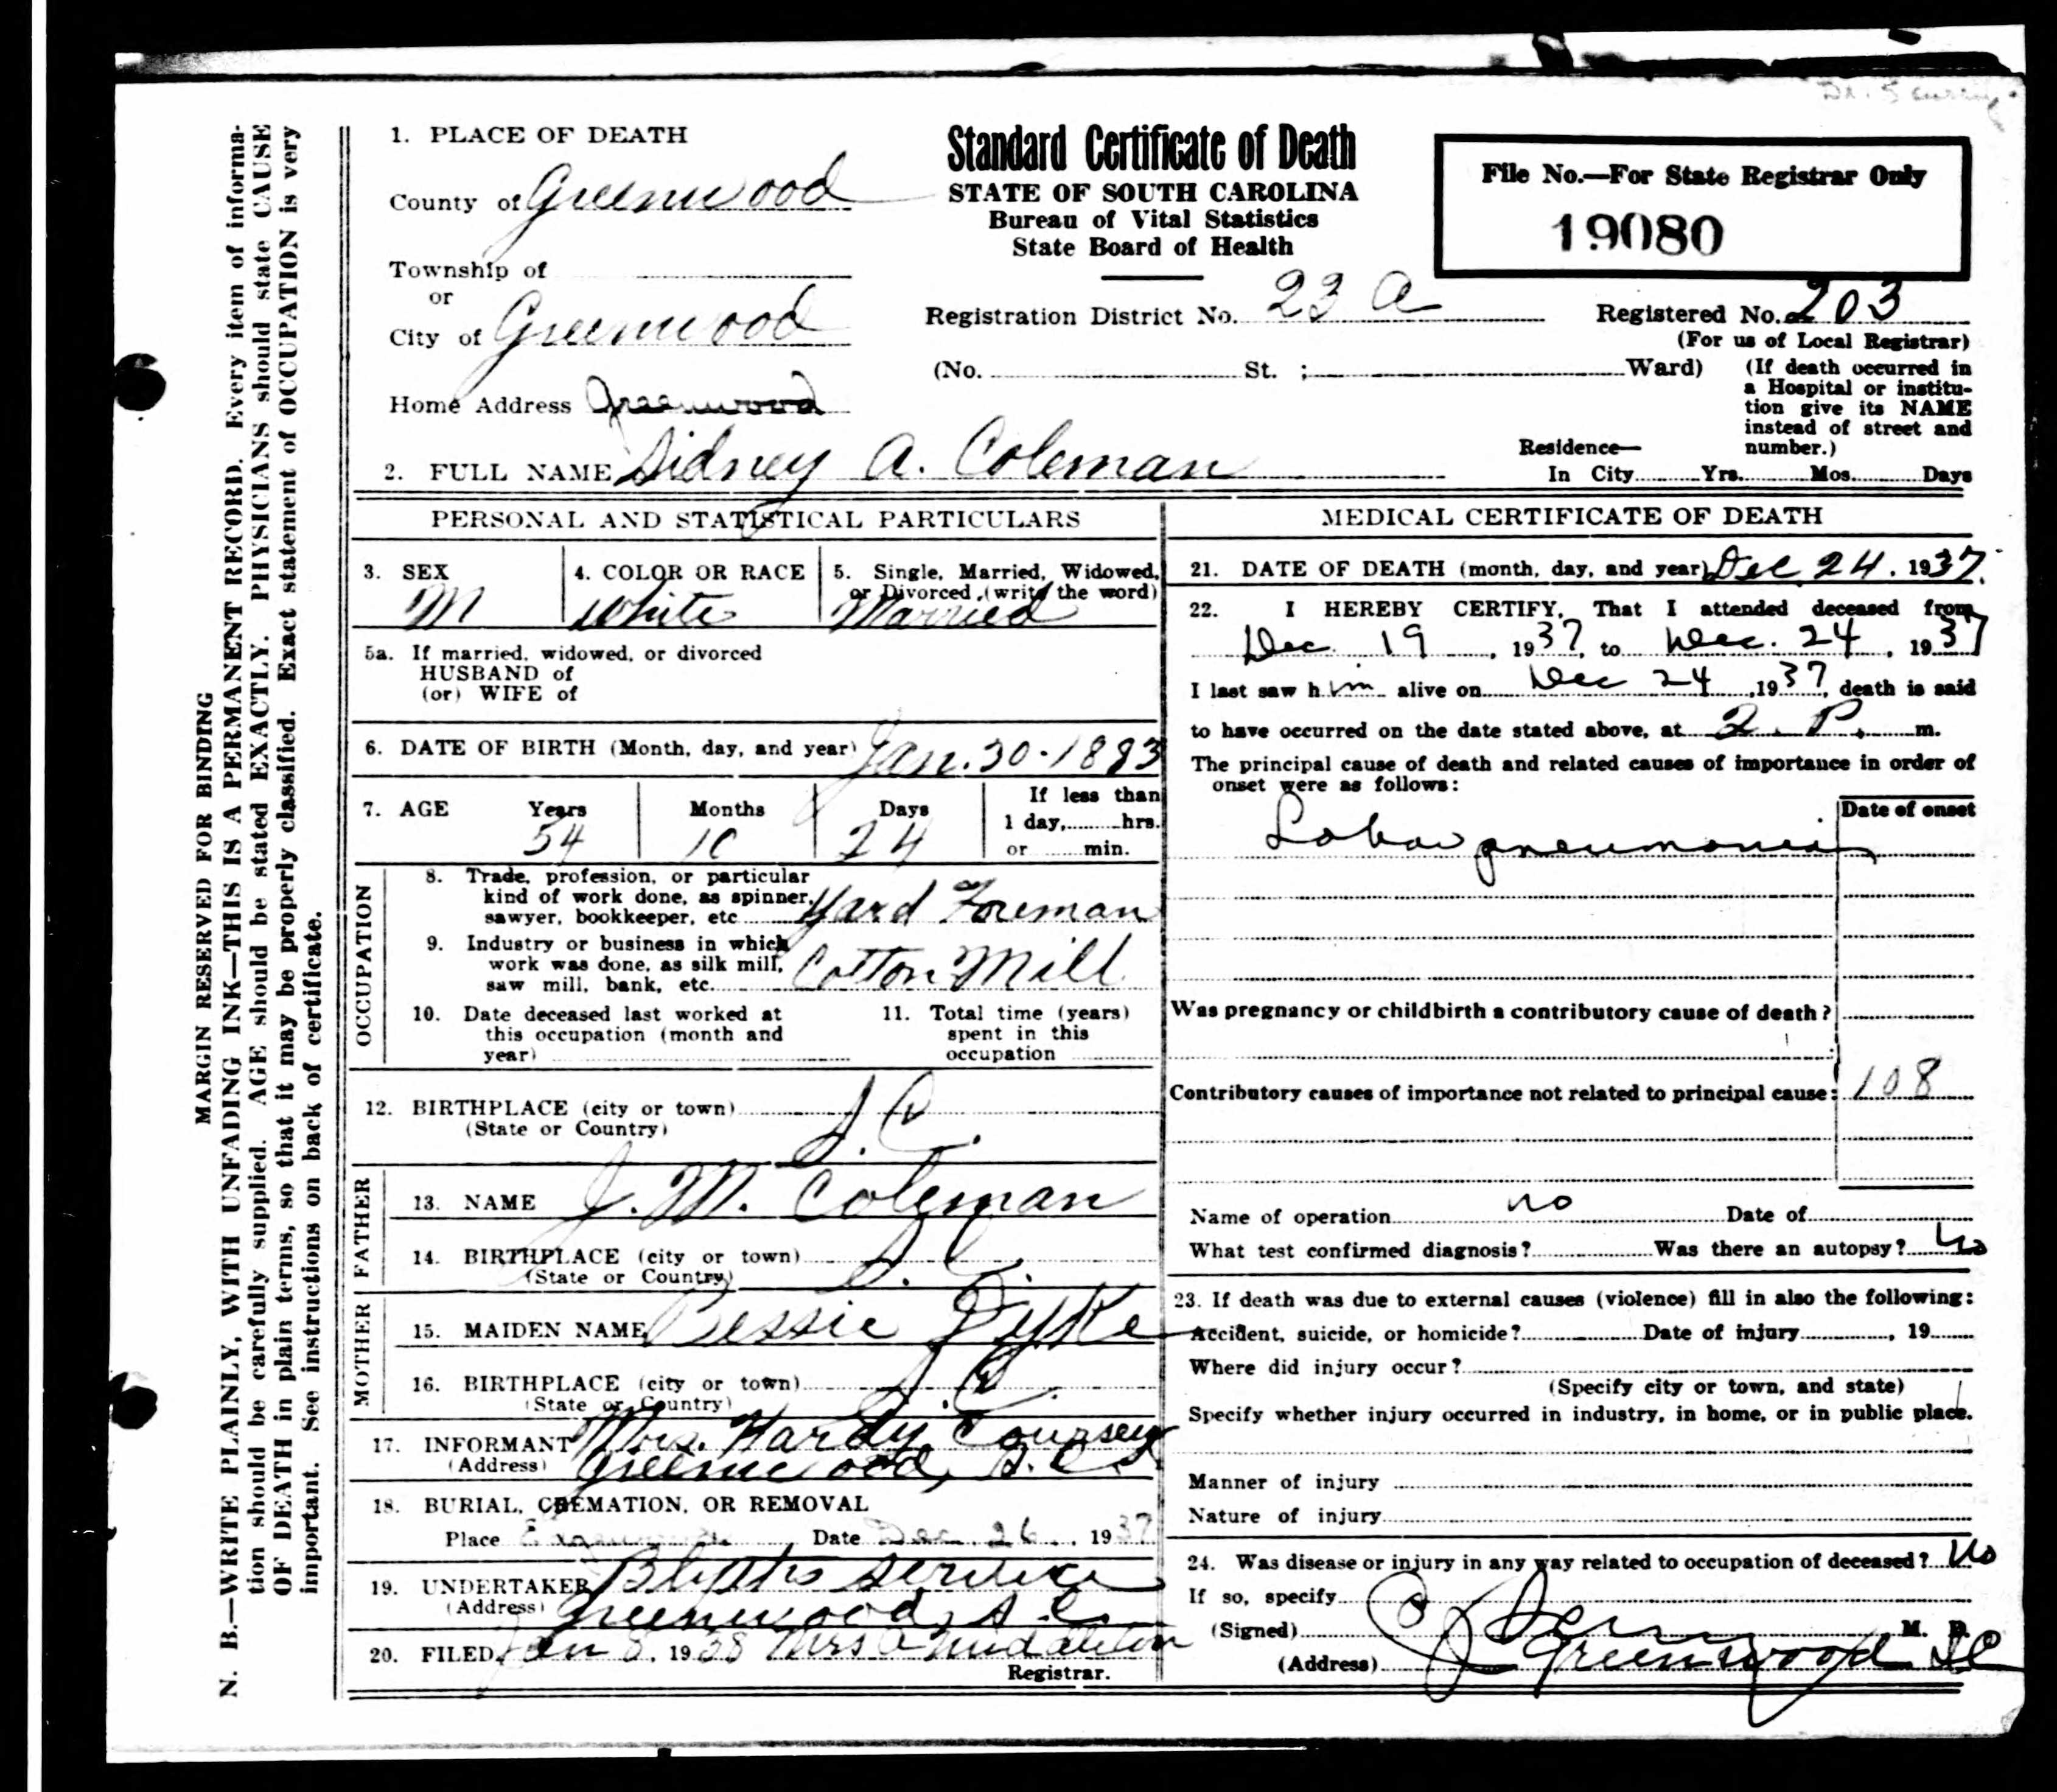 Dr. Scurry
MARGIN RESERVED FOR BINDING
N. B.—WRITE PLAINLY, WITH UNFADING INK—THIS IS A PERMANENT RECORD. Every item of informa-
tion should be carefully supplied. AGE should be stated EXACTLY. PHYSICIANS should state CAUSE
OF DEATH in plain terms, so that it may be properly classified. Exact statement of OCCUPATION is very
important. See instructions on back of certificate.
1. PLACE OF DEATH
County of Greenwood
Township of
or
City of Greenwood
Home Address Greenwood
Standard Certificate of Death
STATE OF SOUTH CAROLINA
Bureau of Vital Statistics
State Board of Health
File No.—For State Registrar Only
19080
Registration District No. 23 A
Registered No. 203
(For us of Local Registrar)
(No. St. ; Ward)
(If death occurred in
a Hospital or institu-
tion give its NAME
instead of street and
number.)
2. FULL NAME Sidney A. Coleman
Residence—
In City Yrs. Mos. Days
PERSONAL AND STATISTICAL PARTICULARS
3. SEX
M
4. COLOR OR RACE
White
5. Single, Married, Widowed,
or Divorced (write the word)
Married
5a. If married, widowed, or divorced
HUSBAND of
(or) WIFE of
6. DATE OF BIRTH (Month, day, and year) Jan. 30-1883
7. AGE Years Months Days
54 10 24
If less than
1 day, hrs.
or min.
OCCUPATION
8. Trade, profession, or particular
kind of work done, as spinner,
sawyer, bookkeeper, etc Yard Foreman
9. Industry or business in which
work was done, as silk mill,
saw mill, bank, etc. Cotton Mill
10. Date deceased last worked at
this occupation (month and
year)
11. Total time (years)
spent in this
occupation
12. BIRTHPLACE (city or town) S.C.
(State or Country)
FATHER
13. NAME J. M. Coleman
14. BIRTHPLACE (city or town) S.C.
(State or Country)
MOTHER
15. MAIDEN NAME Bessie Dyke
16. BIRTHPLACE (city or town) S.C.
(State or Country)
17. INFORMANT Mrs. Hardy Coursey
(Address) Greenwood, S.C.
18. BURIAL, CREMATION, OR REMOVAL
Place Date Dec. 26, 1937
19. UNDERTAKER Blyths Service
(Address) Greenwood, S.C.
20. FILED Jan 8, 1938 Mrs Middleton
Registrar.
MEDICAL CERTIFICATE OF DEATH
21. DATE OF DEATH (month, day, and year) Dec 24, 1937.
22. I HEREBY CERTIFY, That I attended deceased from
Dec. 19, 1937, to Dec. 24, 1937
I last saw him alive on Dec 24, 1937, death is said
to have occurred on the date stated above, at 2 P. m.
The principal cause of death and related causes of importance in order of
onset were as follows:
Date of onset
Lobar pneumonia
Was pregnancy or childbirth a contributory cause of death?
Contributory causes of importance not related to principal cause: 108
Name of operation no Date of
What test confirmed diagnosis? Was there an autopsy? No
23. If death was due to external causes (violence) fill in also the following:
Accident, suicide, or homicide? Date of injury , 19
Where did injury occur?
(Specify city or town, and state)
Specify whether injury occurred in industry, in home, or in public place.
Manner of injury
Nature of injury
24. Was disease or injury in any way related to occupation of deceased? No
If so, specify
(Signed) M. D.
(Address) Greenwood SC